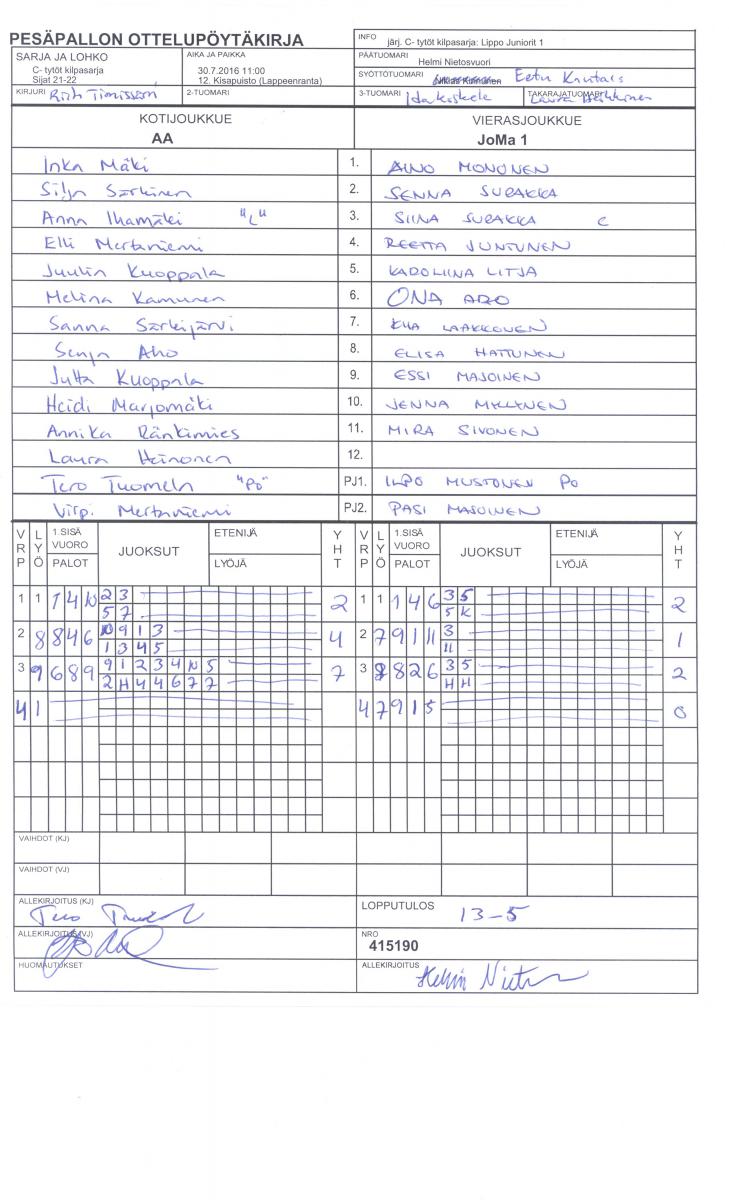 PESÄPALLON OTTELUPÖYTÄKIRJA
INFO järj. C- tytöt kilpasarja: Lippo Juniorit 1
SARJA JA LOHKO
C- tytöt kilpasarja
Sijat 21-22
AIKA JA PAIKKA
30.7.2016 11:00
12. Kisapuisto (Lappeenranta)
PÄÄTUOMARI
Helmi Nietosvuori
SYÖTTÖTUOMARI Eetu
KIRJURI
2-TUOMARI
3-TUOMARI
TAKARAJATUOMARI
KOTIJOUKKUE
AA
VIERASJOUKKUE
JoMa 1
Inka Mäki 1. AINO MONONEN
Silja Särkinen 2. SENNA SURAKKA
Anna Ihamäki "L" 3. SIINA SURAKKA C
Elli Mertaniemi 4. REETTA JUNTUNEN
Juulia Kuoppala 5. KAROLIINA LITJA
Melina Kamunen 6. ONA ARO
Sanna Särkijärvi 7. KIIA LAAKKONEN
Senja Aho 8. ELISA HATTUNEN
Jutta Kuoppala 9. ESSI MASOINEN
Heidi Marjomäki 10. JENNA MYLLYNEN
Annika Ränkimies 11. MIRA SIVONEN
Laura Heinonen 12.
Tero Tuomela "Po" PJ1. ILPO MUSTONEN Po
Virpi Mertaniemi PJ2. PASI MASOINEN
VRP LYÖ 1.SISÄ VUORO PALOT JUOKSUT ETENIJÄ LYÖJÄ YHT VRP LYÖ 1.SISÄ VUORO PALOT JUOKSUT ETENIJÄ LYÖJÄ YHT
1 1 1 4 10 2 3 2 1 1 1 4 6 3 5 2
5 7 5 K
2 8 8 4 6 10 9 1 3 4 2 7 9 1 11 3 1
1 3 4 5 11
3 9 6 8 9 9 1 2 3 4 10 5 7 3 8 8 2 6 3 5 2
2 H 4 4 6 7 7 H H
4 1 4 7 9 1 5 0
VAIHDOT (KJ)
VAIHDOT (VJ)
ALLEKIRJOITUS (KJ)
LOPPUTULOS 13-5
ALLEKIRJOITUS (VJ)
NRO
415190
HUOMAUTUKSET
ALLEKIRJOITUS